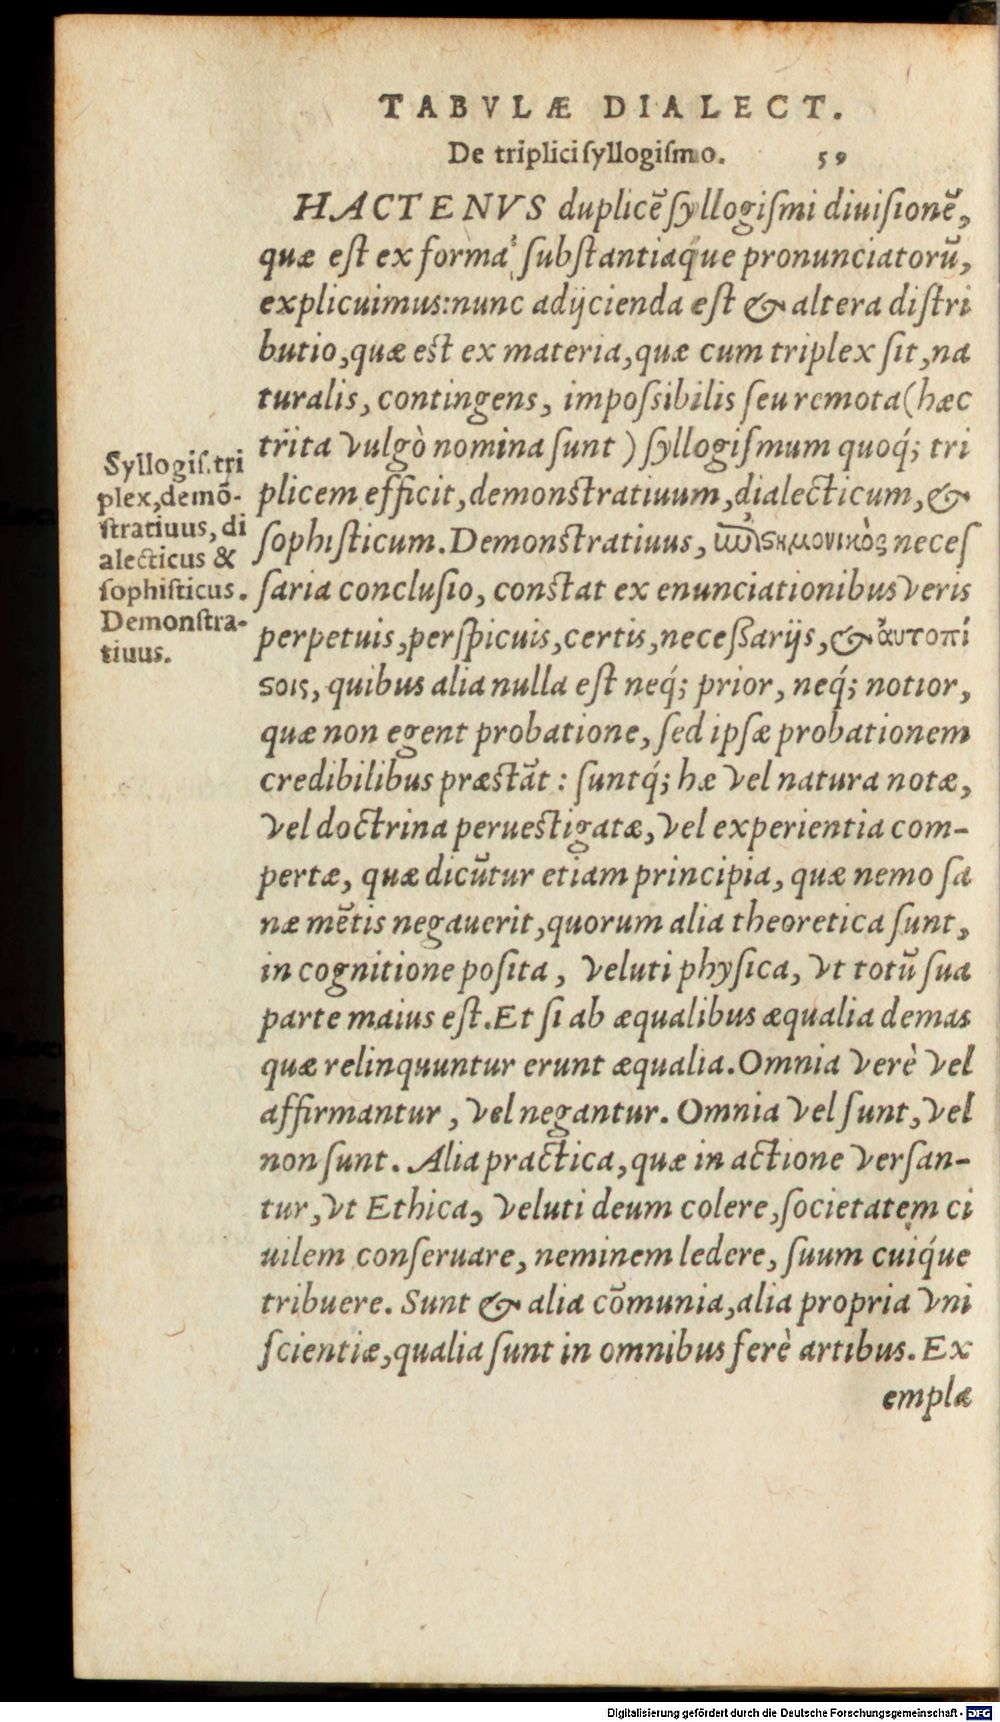 TABVLÆ DIALECT.
De tripliciſyllogiſmo. 59
HACTENVS duplicẽ ſyllogiſmi diuiſionẽ,
quæ eſt ex forma ſubſtantiaq́ue pronunciatorũ,
explicuimus: nunc adijcienda eſt & altera diſtri
butio, quæ est ex materia, quæ cum triplex ſit, na
turalis, contingens, impoſsibilis ſeu remota (hæc
trita vulgò nomina ſunt) ſyllogiſmum quoq́; tri
plicem efficit, demonſtratiuum, dialecticum, &
ſophiſticum. Demonſtratiuus, neceſ
ſaria concluſio, conſtat ex enunciationibus veris
perpetuis, perſpicuis, certis, neceßarijs, & ἀυτοπί
ϛοις, quibus alia nulla eſt neq́; prior, neq́; notior,
quæ non egent probatione, ſed ipſæ probationem
credibilibus præſtãt: ſuntq́; hæ vel natura notæ,
vel doctrina perueſtigatæ, vel experientia com-
pertæ, quæ dicũtur etiam principia, quæ nemo ſa
næ mẽtis negauerit, quorum alia theoretica ſunt,
in cognitione poſita, veluti phyſica, vt totũ ſua
parte maius eſt. Et ſi ab æqualibus æqualia demas
quæ relinquuntur erunt æqualia. Omnia verè vel
affirmantur, vel negantur. Omnia vel ſunt, vel
non ſunt. Alia practica, quæ in actione verſan-
tur, vt Ethica, veluti deum colere, ſocietatem ci
uilem conſeruare, neminem ledere, ſuum cuiq́ue
tribuere. Sunt & alia cõmunia, alia propria vni
ſcientiæ, qualia ſunt in omnibus ferè artibus. Ex
emplæ
Syllogiſ. tri
plex, demõ-
ſtratiuus, di
alecticus &
ſophiſticus.
Demonſtra-
tiuus.
Digitalisierung gefördert durch die Deutsche Forschungsgemeinschaft - DFG